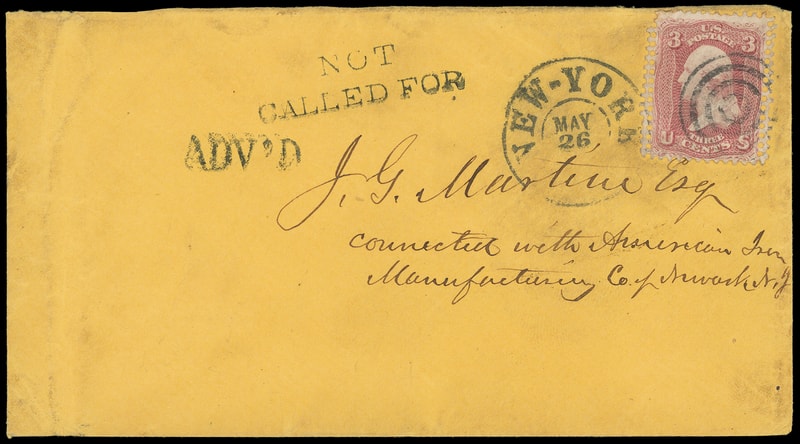 NOT
CALLED FOR
ADV'D
NEW-YORK
MAY
26
U.S.
POSTAGE
3 3
U THREE S
CENTS
J. G. Martine Esq
connected with American Iron
Manufacturing Co. of Newark N.J.